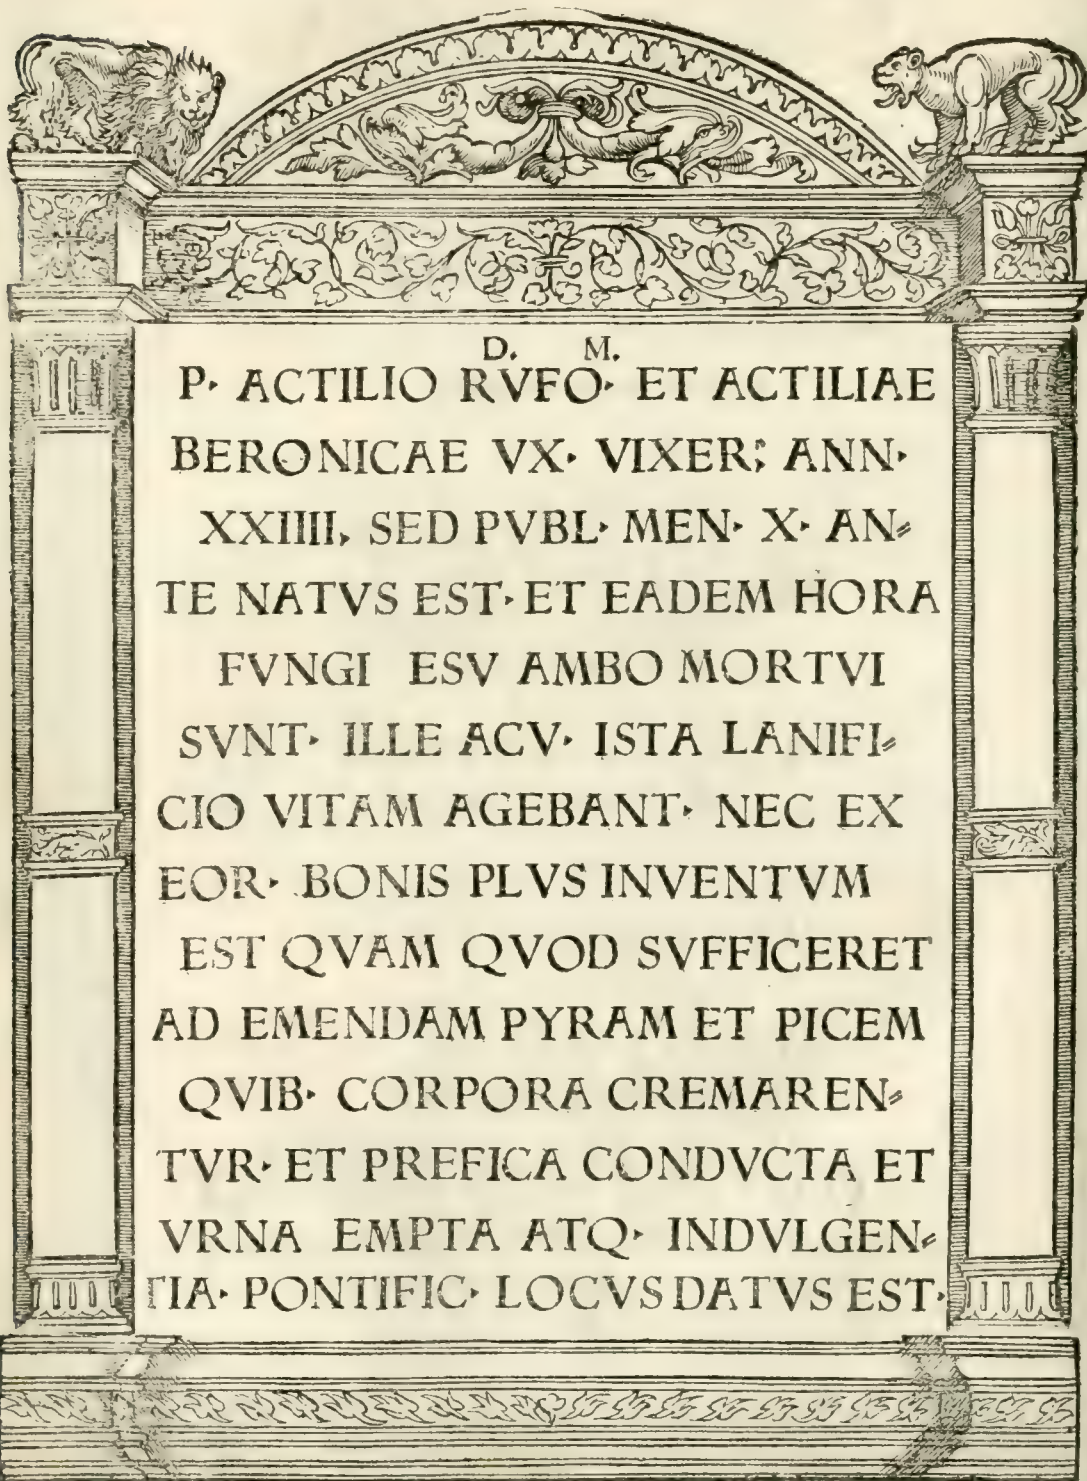 D. M.
P· ACTILIO RVFO· ET ACTILIAE
BERONICAE VX· VIXER; ANN·
XXIIII, SED PVBL· MEN· X· AN⸗
TE NATVS EST· ET EADEM HORA
FVNGI ESV AMBO MORTVI
SVNT· ILLE ACV· ISTA LANIFI⸗
CIO VITAM AGEBANT· NEC EX
EOR· BONIS PLVS INVENTVM
EST QVAM QVOD SVFFICERET
AD EMENDAM PYRAM ET PICEM
QVIB· CORPORA CREMAREN⸗
TVR· ET PREFICA CONDVCTA ET
VRNA EMPTA ATQ· INDVLGEN⸗
TIA· PONTIFIC· LOCVS DATVS EST·